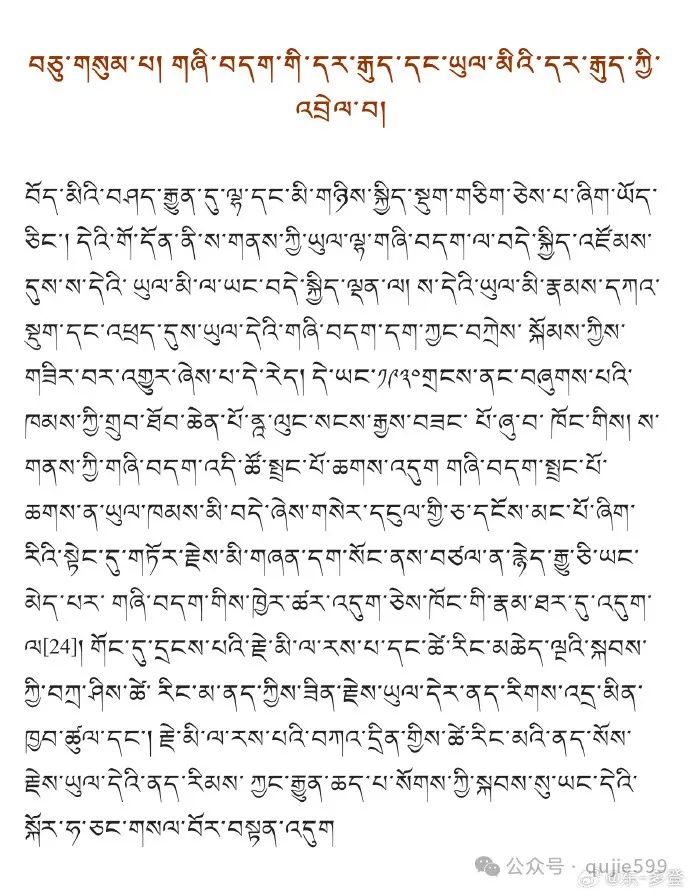 བཅུ་གསུམ་པ། གཞི་བདག་གི་དར་རྒུད་དང་ཡུལ་མིའི་དར་རྒུད་ཀྱི་
འབྲེལ་བ།
བོད་མིའི་བཤད་རྒྱུན་དུ་ལྷ་དང་མི་གཉིས་སྐྱིད་སྡུག་གཅིག་ཅེས་པ་ཞིག་ཡོད་
ཅིང་། དེའི་གོ་དོན་ནི་ས་གནས་ཀྱི་ཡུལ་ལྷ་གཞི་བདག་ལ་བདེ་སྐྱིད་འཛོམས་
དུས་ས་དེའི་ ཡུལ་མི་ལ་ཡང་བདེ་སྐྱིད་ལྡན་ལ། ས་དེའི་ཡུལ་མི་རྣམས་དཀའ་
སྡུག་དང་འཕྲད་དུས་ཡུལ་དེའི་གཞི་བདག་དག་ཀྱང་བཀྲེས་ སྐོམས་ཀྱིས་
གཟིར་བར་འགྱུར་ཞེས་པ་དེ་རེད། དེ་ཡང་༡༩༣༠གྲངས་ནང་བཞུགས་པའི་
ཁམས་ཀྱི་གྲུབ་ཐོབ་ཆེན་པོ་ནཱ་ལུང་སངས་རྒྱས་བཟང་ པོ་ཞུ་བ་ ཁོང་གིས། ས་
གནས་ཀྱི་གཞི་བདག་འདི་ཚོ་སྤྲང་པོ་ཆགས་འདུག གཞི་བདག་སྤྲང་པོ་
ཆགས་ན་ཡུལ་ཁམས་མི་བདེ་ཞེས་གསེར་དངུལ་གྱི་ཅ་དངོས་མང་པོ་ཞིག་
རིའི་སྟེང་དུ་གཏོར་རྗེས་མི་གཞན་དག་སོང་ནས་བཙལ་ན་རྙེད་རྒྱུ་ཅི་ཡང་
མེད་པར་ གཞི་བདག་གིས་ཁྱེར་ཚར་འདུག་ཅེས་ཁོང་གི་རྣམ་ཐར་དུ་འདུག་
ལ[24]། གོང་དུ་དྲངས་པའི་རྗེ་མི་ལ་རས་པ་དང་ཚེ་རིང་མཆེད་ལྔའི་སྐབས་
ཀྱི་བཀྲ་ཤིས་ཚེ་ རིང་མ་ནད་ཀྱིས་ཟིན་རྗེས་ཡུལ་དེར་ནད་རིགས་འདྲ་མིན་
ཁྱབ་ཚུལ་དང་། རྗེ་མི་ལ་རས་པའི་བཀའ་དྲིན་གྱིས་ཚེ་རིང་མའི་ནད་སོས་
རྗེས་ཡུལ་དེའི་ནད་རིམས་ ཀྱང་རྒྱུན་ཆད་པ་སོགས་ཀྱི་སྐབས་སུ་ཡང་དེའི་
སྐོར་ཧ་ཅང་གསལ་བོར་བསྟན་འདུག
公众号·qujie599
@东-多登